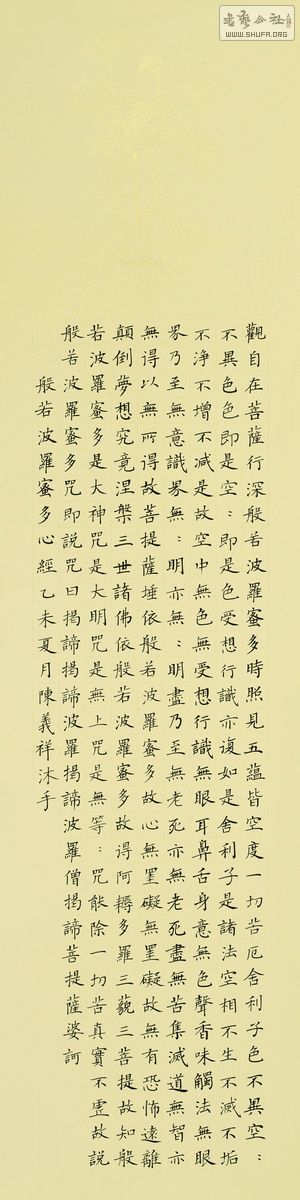 书艺公社
WWW.SHUFA.ORG
觀自在菩薩行深般若波羅蜜多時照見五蘊皆空度一切苦厄舍利子色不異空：
不異色色即是空：即是色受想行識亦復如是舍利子是諸法空相不生不滅不垢
不淨不增不減是故空中無色無受想行識無眼耳鼻舌身意無色聲香味觸法無眼
界乃至無意識界無：明亦無：明盡乃至無老死亦無老死盡無苦集滅道無智亦
無得以無所得故菩提薩埵依般若波羅蜜多故心無罣礙無罣礙故無有恐怖遠離
顛倒夢想究竟涅槃三世諸佛依般若波羅蜜多故得阿耨多羅三藐三菩提故知般
若波羅蜜多是大神咒是大明咒是無上咒是無等：咒能除一切苦真實不虛故說
般若波羅蜜多咒即說咒曰揭諦揭諦波羅揭諦波羅僧揭諦菩提薩婆訶
般若波羅蜜多心經乙未夏月陳義祥沐手